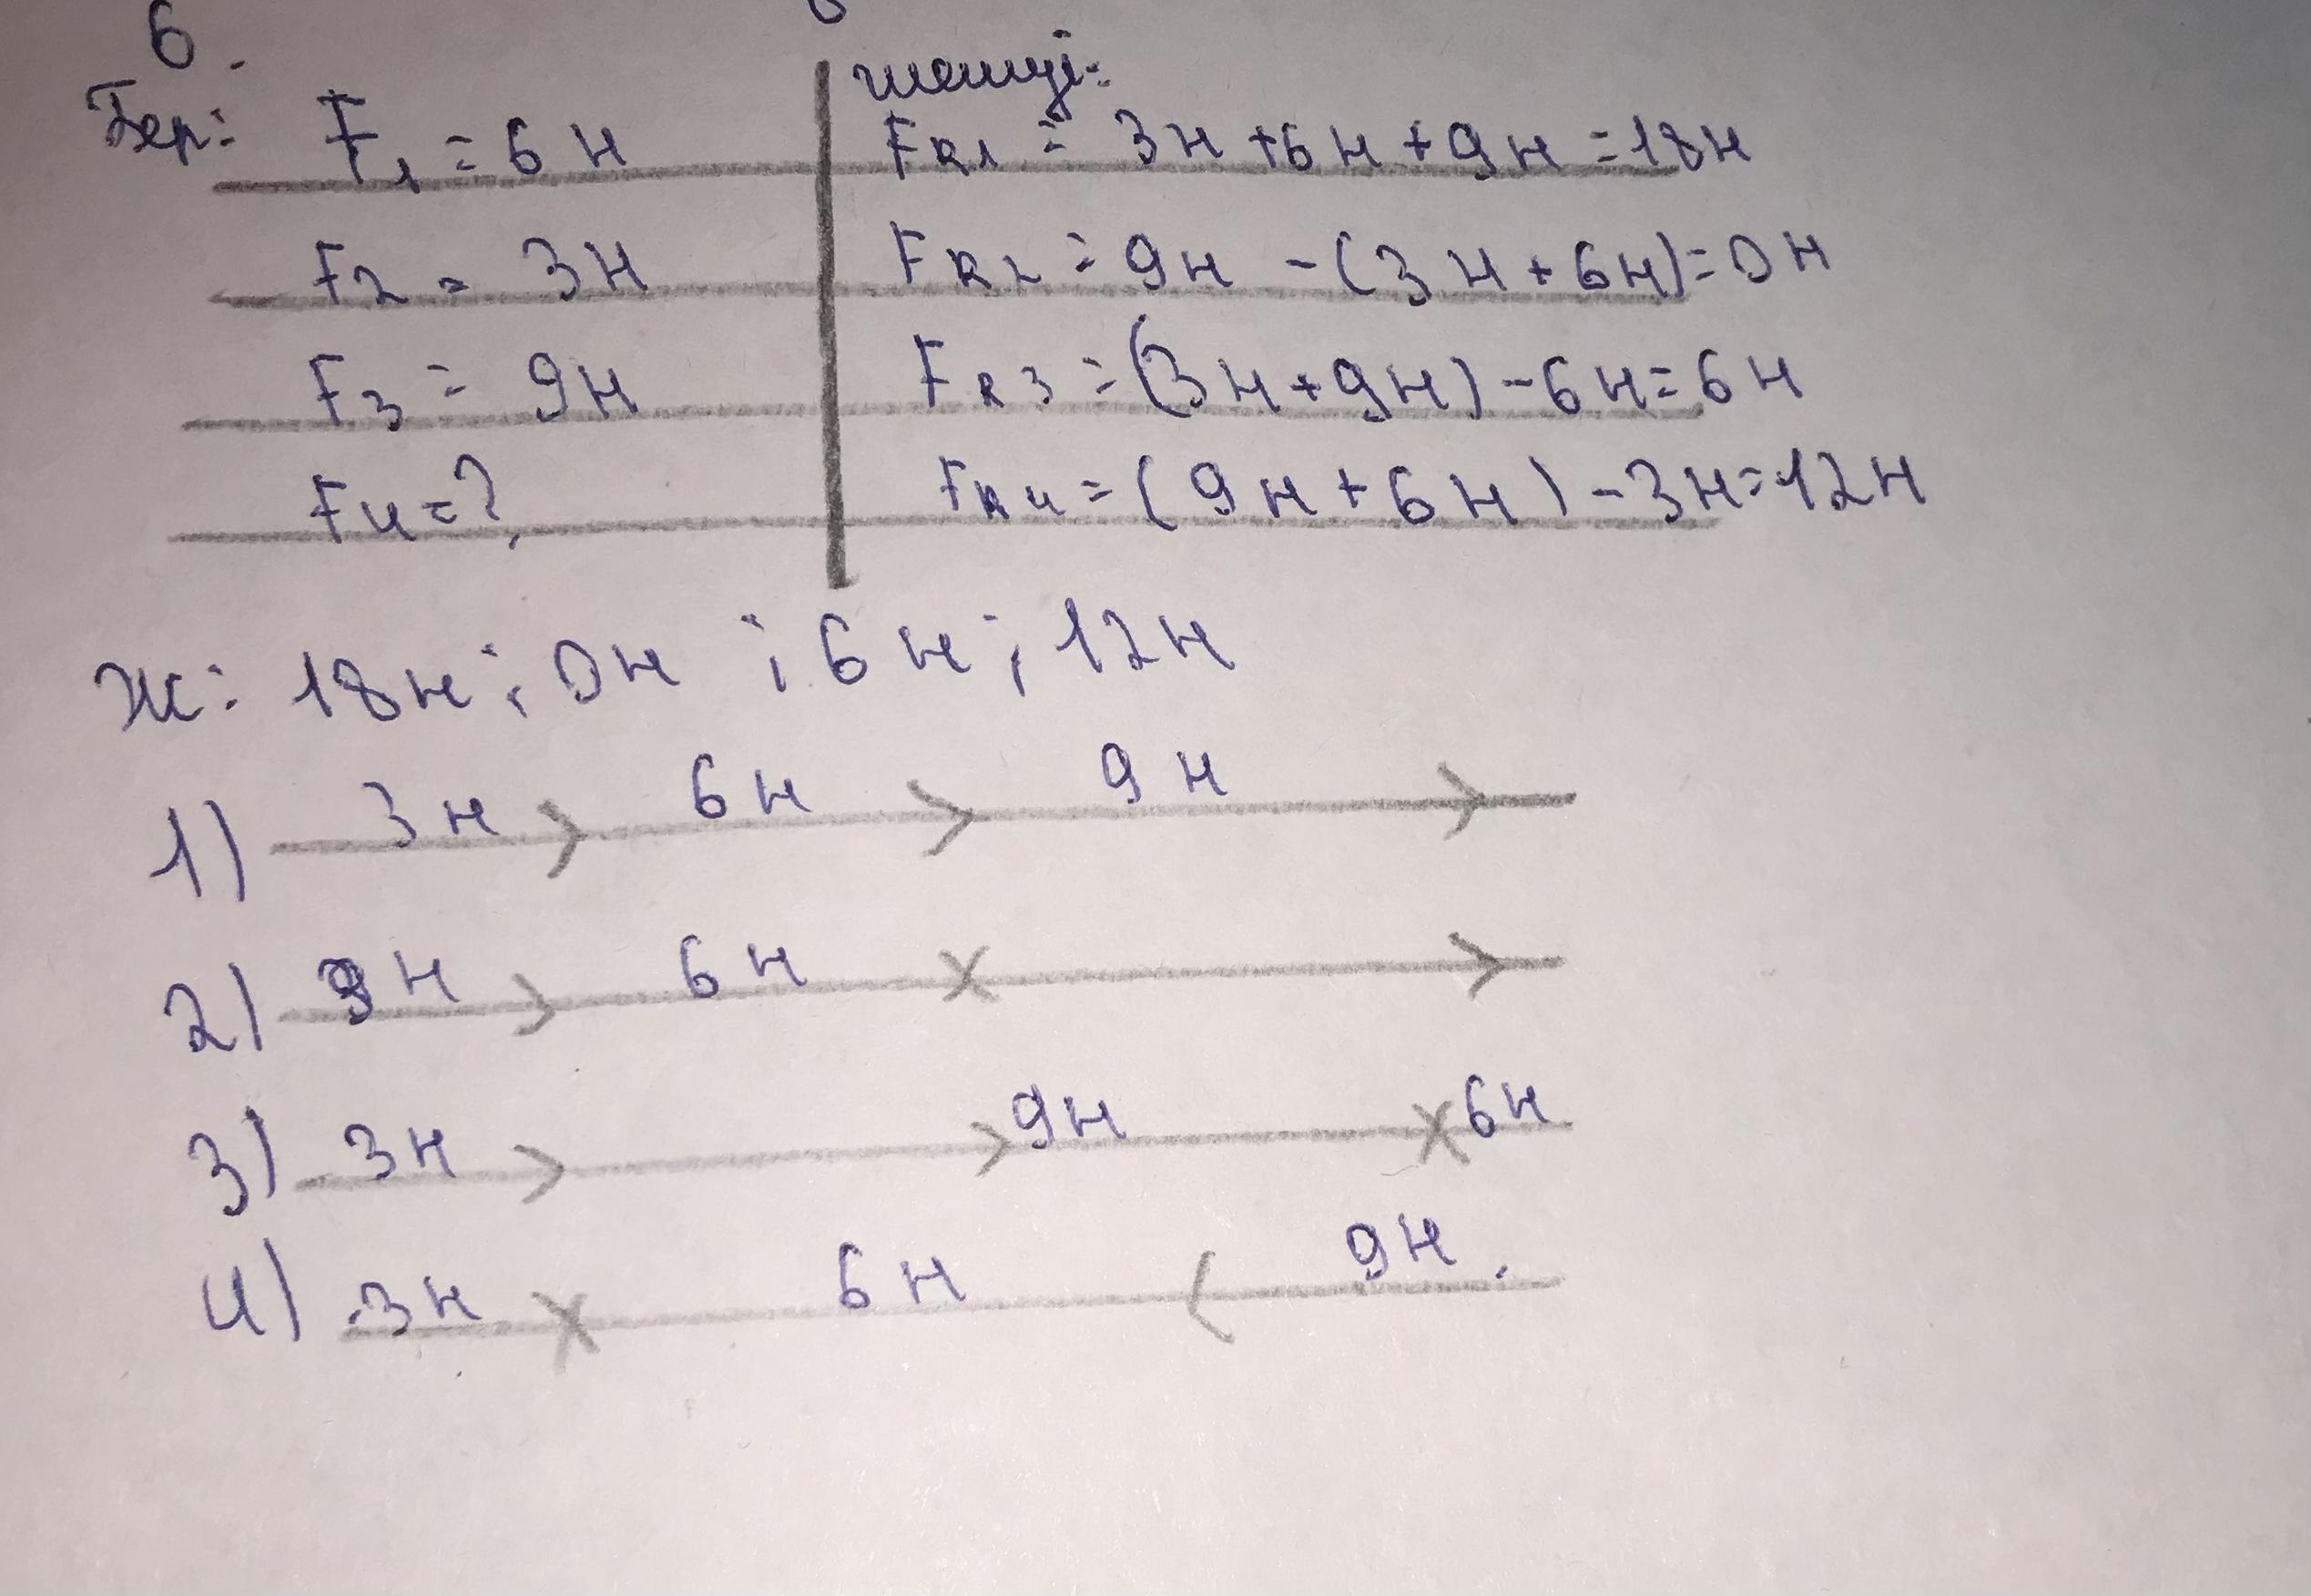 6.
Бер: F1 = 6 Н
F2 = 3Н
F3 = 9Н
F4 = ?
шешуі:
FR1 = 3Н + 6Н + 9Н = 18Н
FR2 = 9Н - (3Н + 6Н) = 0Н
FR3 = (3Н + 9Н) - 6Н = 6Н
FR4 = (9Н + 6Н) - 3Н = 12Н
Ж: 18Н; 0Н; 6Н; 12Н
1) 3Н 6Н 9Н
2) 9Н 6Н
3) 3Н 9Н 6Н
4) 3Н 6Н 9Н.